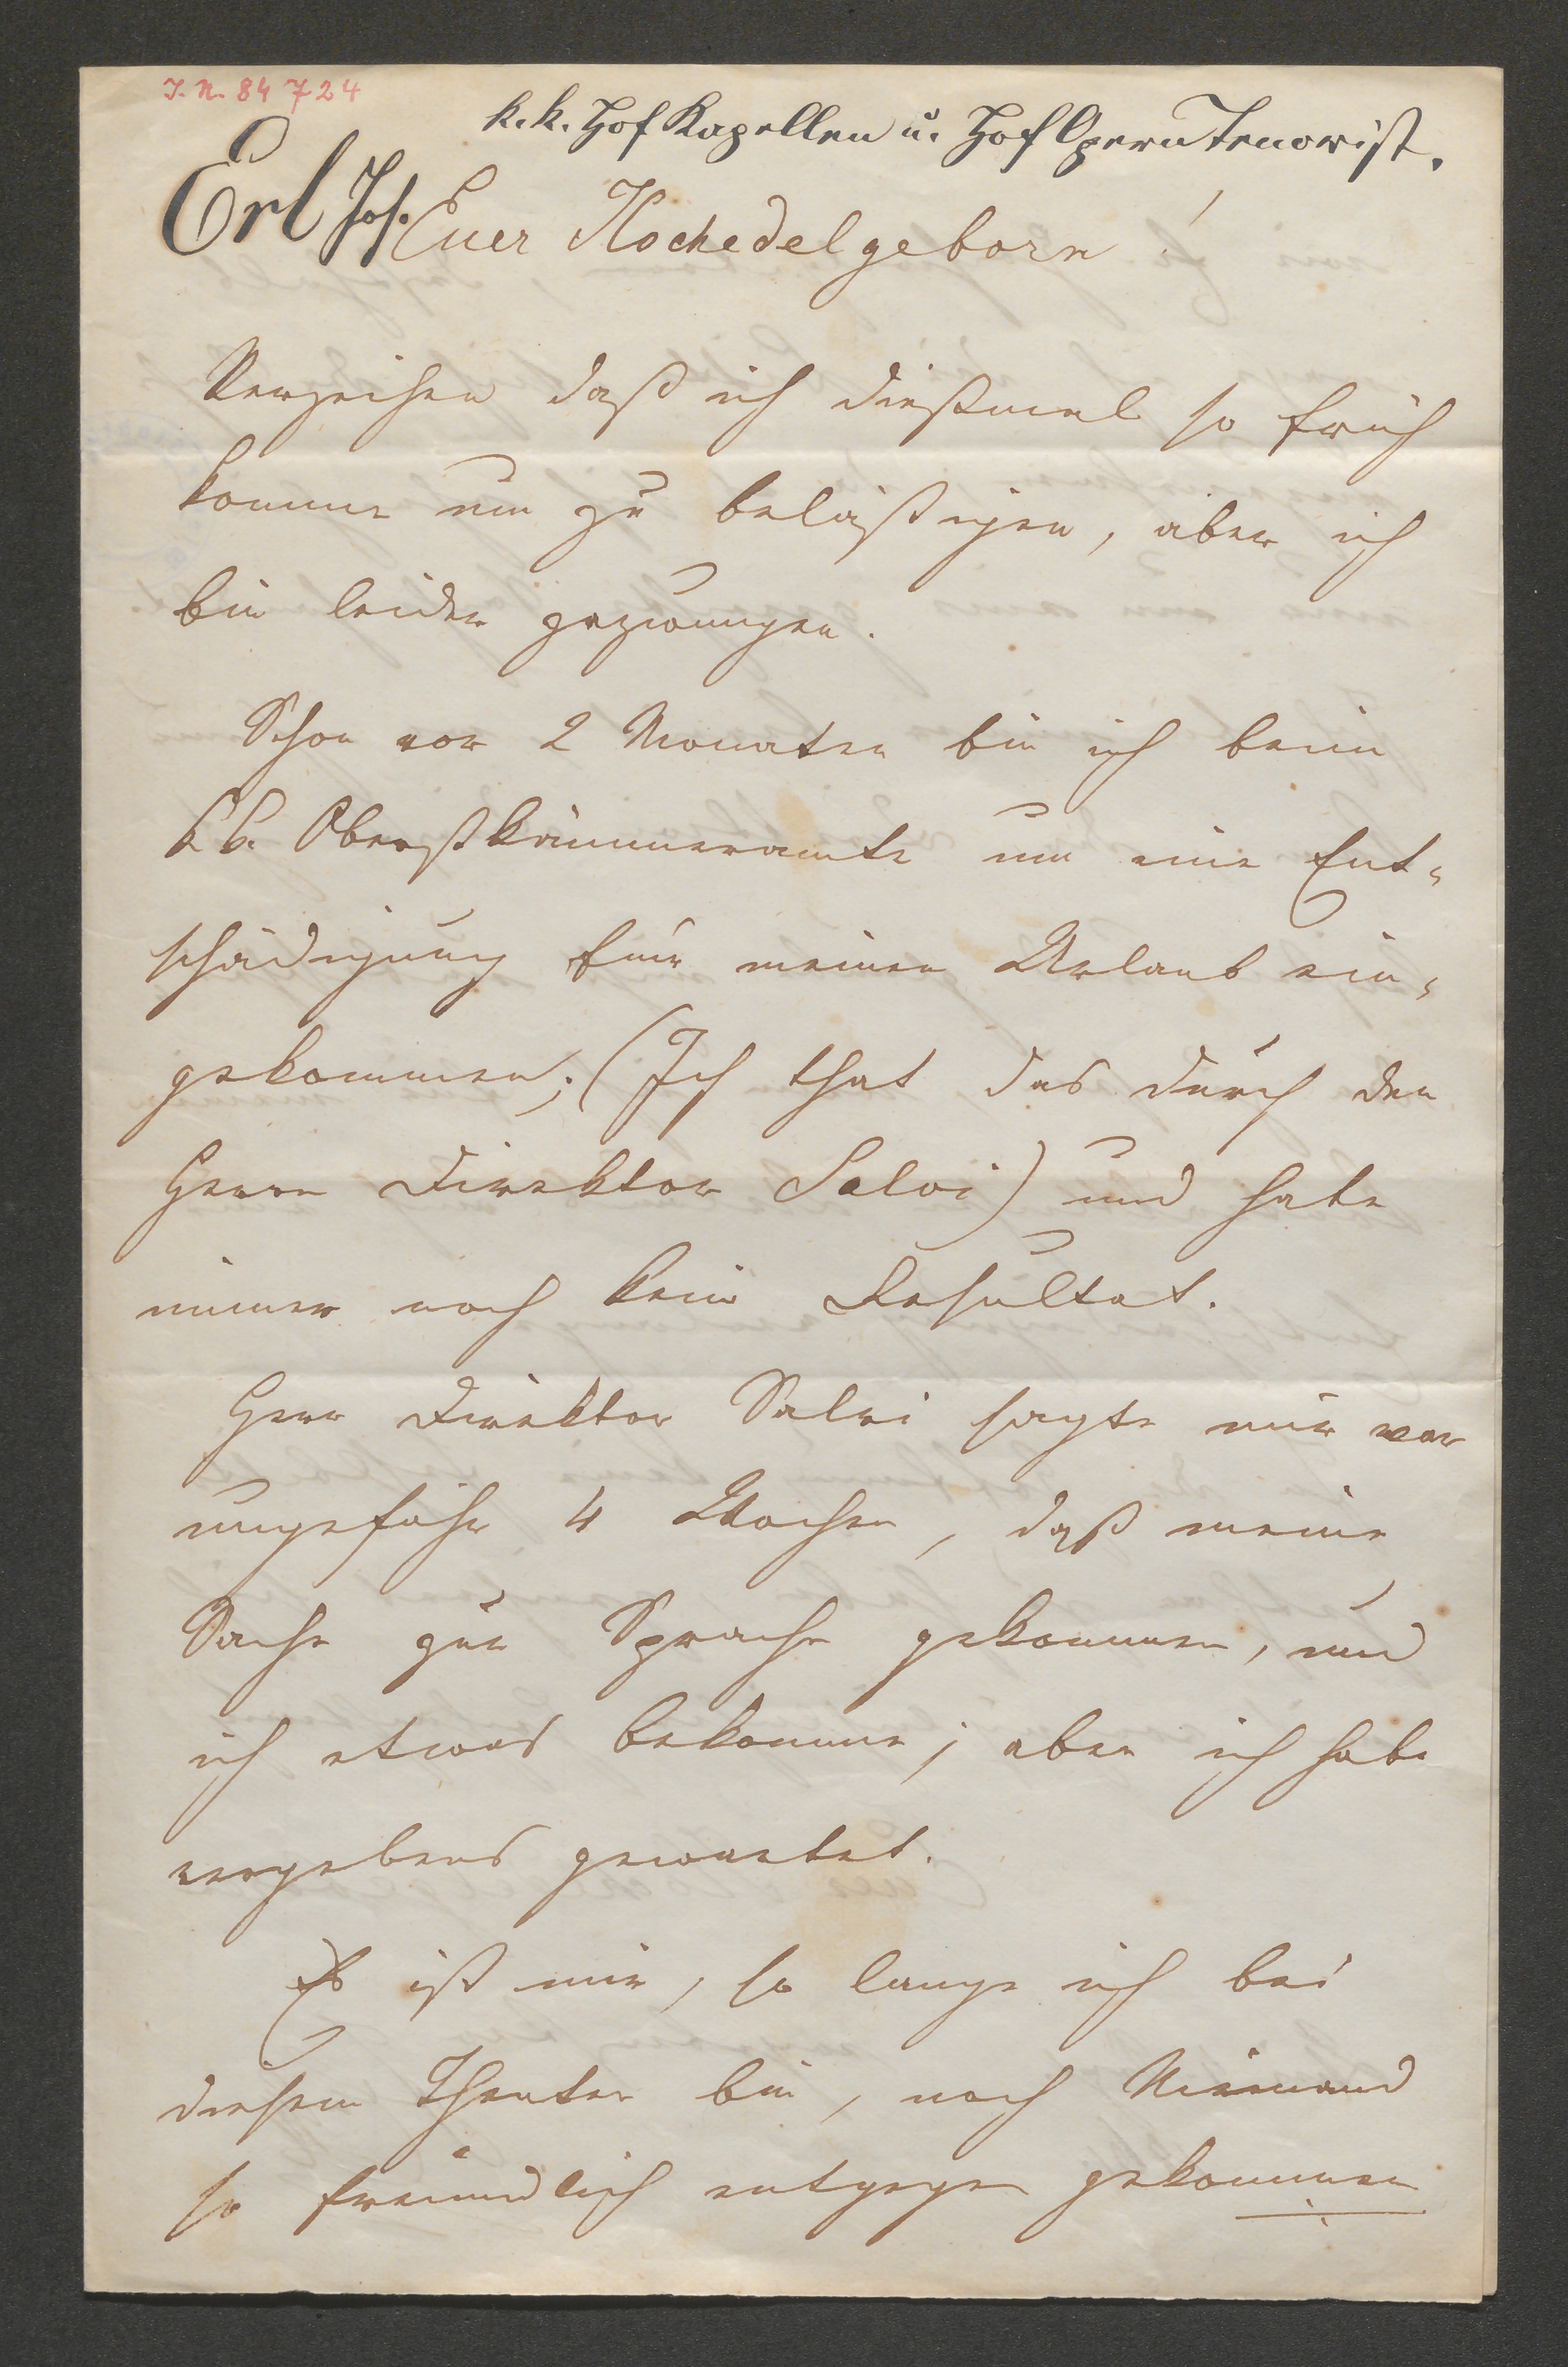 I. N. 84724
k. k. Hof Kapellen u. Hof Opern Tenorist.
Erl Jos.
Euer Hochedelgeborn!
Verzeihen daß ich dießmal so früh
komme um zu beläßtigen, aber ich
bin leider gezwungen.
Schon vor 2 Monaten bin ich beim
kk. Oberstkämmeramte um eine Ent-
schädigung für meinen Urlaub ein-
gekommen; (Ich that das durch den
Herrn Direktor Salvi) und habe
immer noch kein Resultat.
Herr Direktor Salvi sagte mir vor
ungefähr 4 Wochen, daß meine
Sache zur Sprache gekommen, und
ich etwas bekomme; aber ich habe
vergebens gewartet.
Es ist mir, so lange ich bei
diesem Theater bin, noch Niemand
so freundlich entgegen gekommen